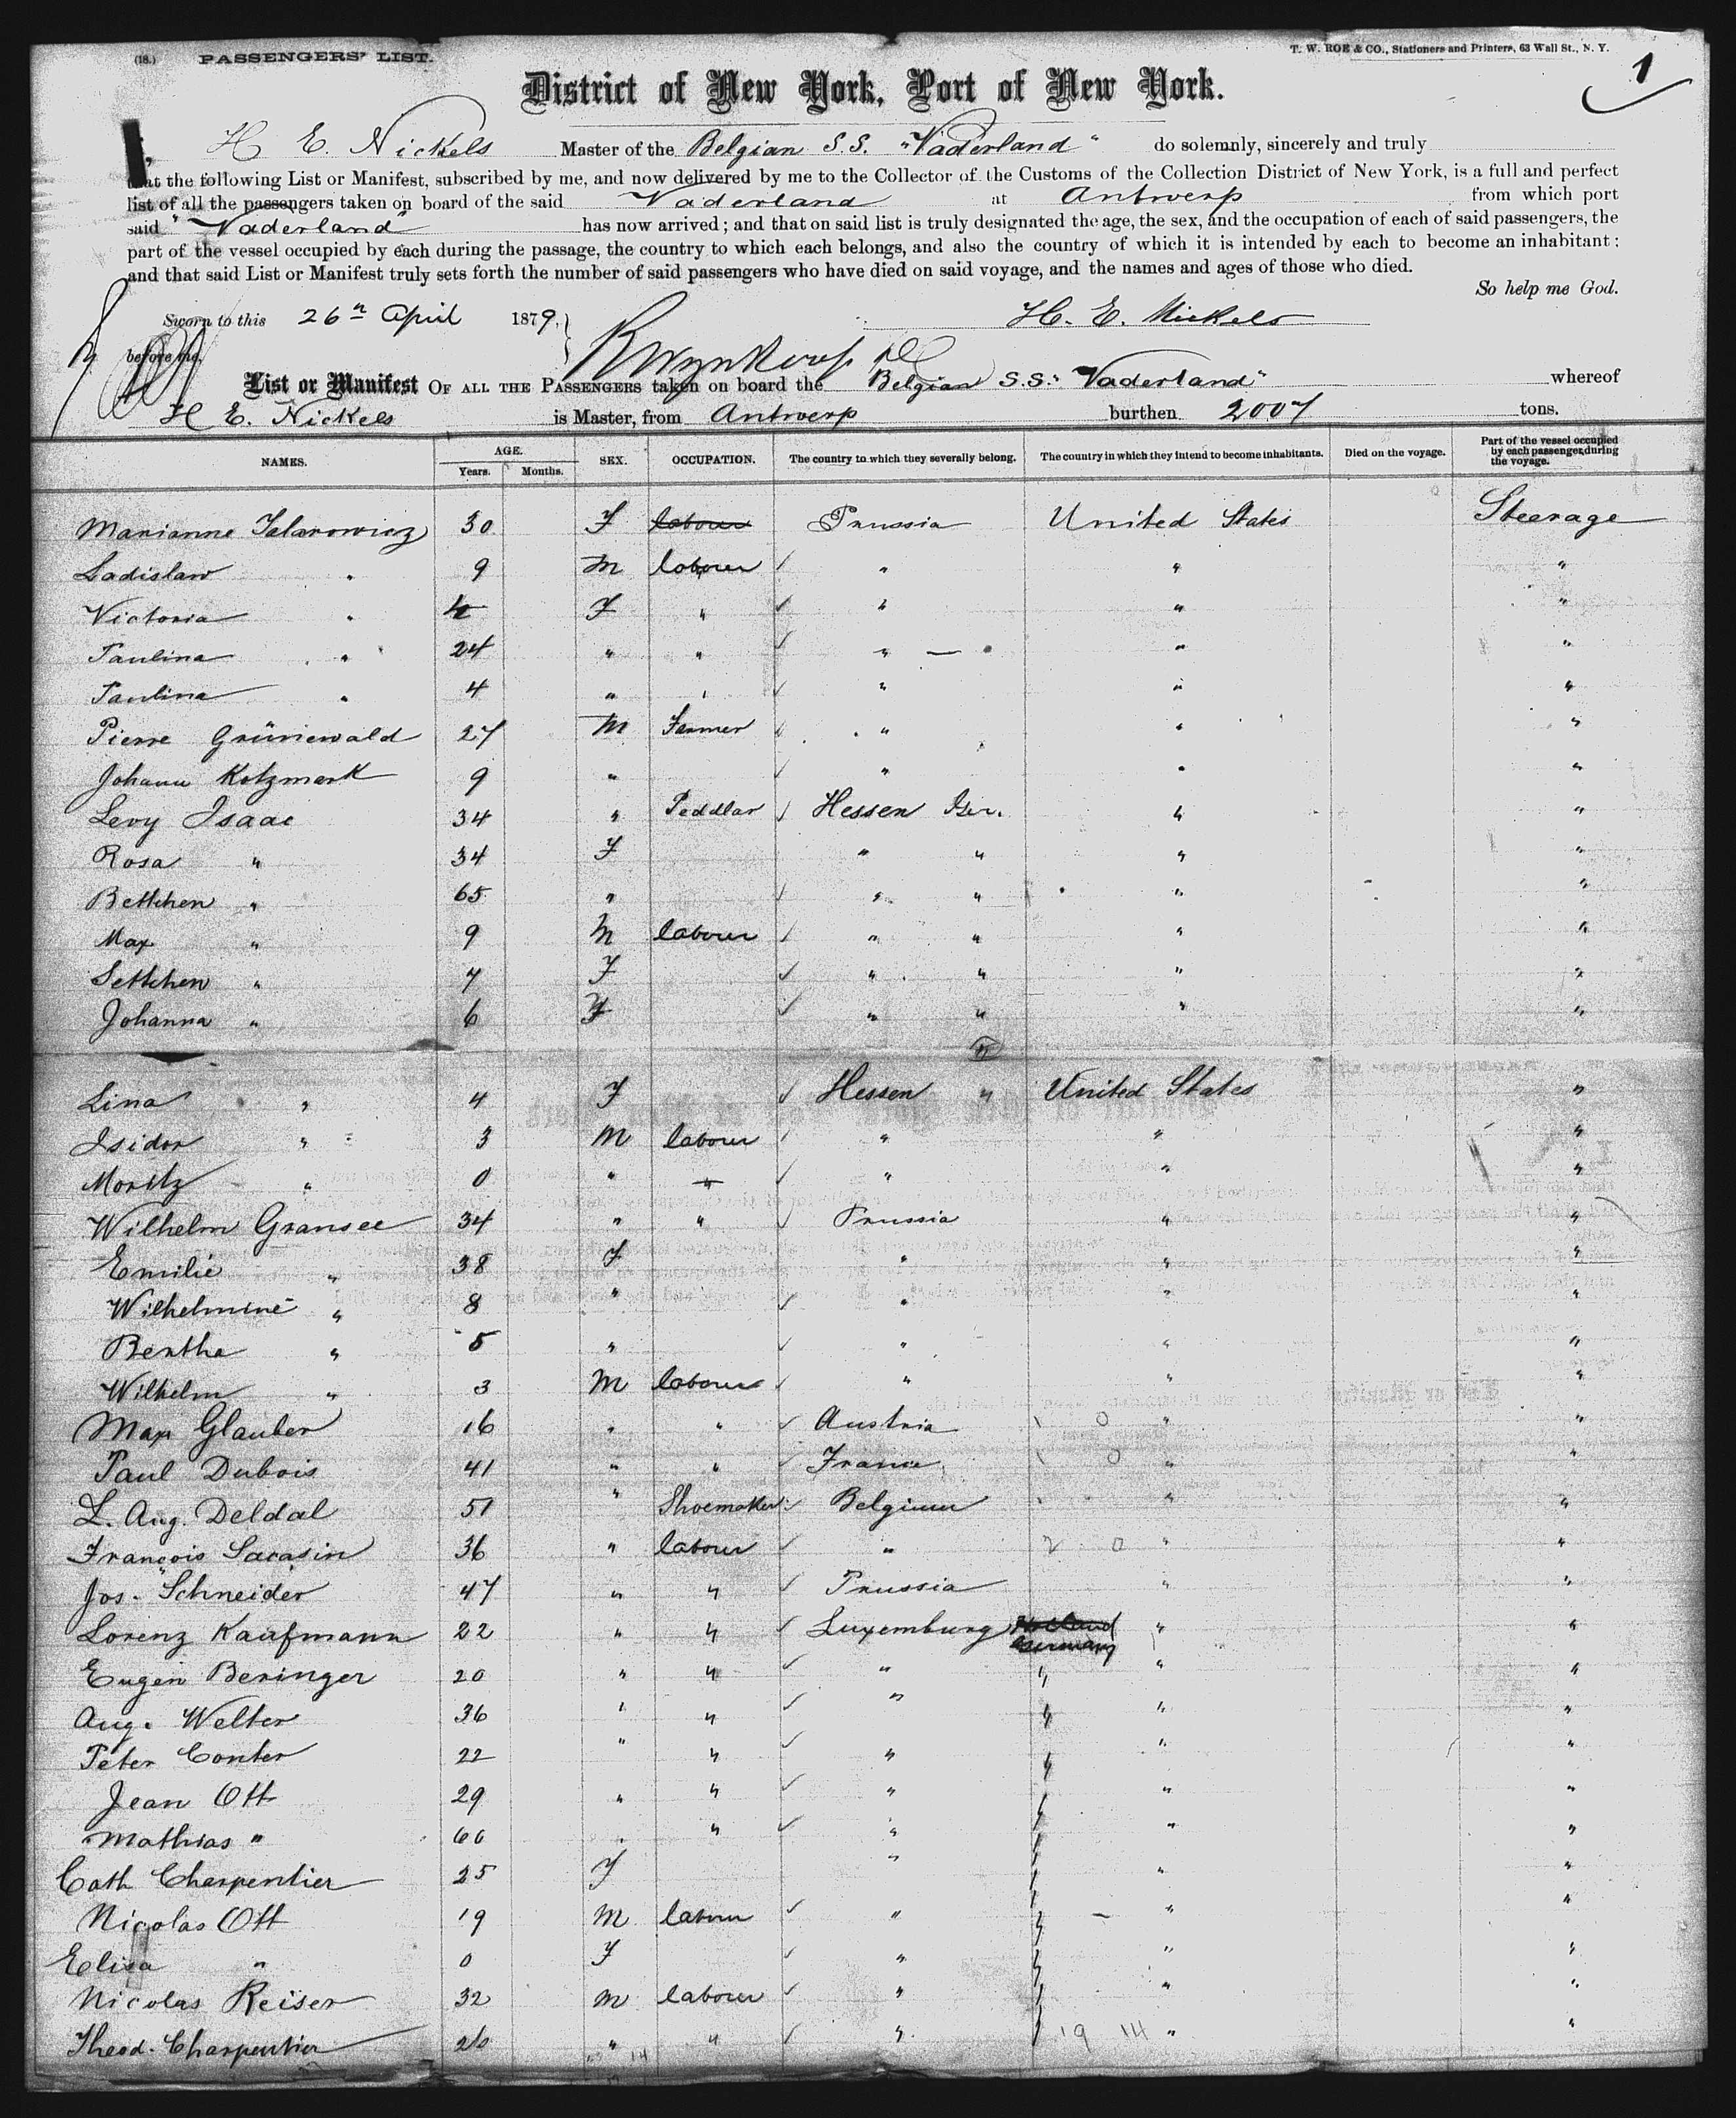 (18.) PASSENGERS' LIST.
T. W. ROE & CO., Stationers and Printers, 63 Wall St., N. Y.
1
District of New York, Port of New York.
I, H E. Nickels Master of the Belgian S.S. "Vaderland" do solemnly, sincerely and truly
that the following List or Manifest, subscribed by me, and now delivered by me to the Collector of the Customs of the Collection District of New York, is a full and perfect
list of all the passengers taken on board of the said Vaderland at Antwerp from which port
said "Vaderland" has now arrived; and that on said list is truly designated the age, the sex, and the occupation of each of said passengers, the
part of the vessel occupied by each during the passage, the country to which each belongs, and also the country of which it is intended by each to become an inhabitant:
and that said List or Manifest truly sets forth the number of said passengers who have died on said voyage, and the names and ages of those who died.
So help me God.
Sworn to this 26th April 1879, H. E. Nickels
before me,
List or Manifest OF ALL THE PASSENGERS taken on board the Belgian S.S. "Vaderland" whereof
H E. Nickels is Master, from Antwerp burthen 2007 tons.
NAMES. AGE. Years. Months. SEX. OCCUPATION. The country to which they severally belong. The country in which they intend to become inhabitants. Died on the voyage. Part of the vessel occupied by each passenger during the voyage.
Marianne 30 F labour Prussia United States Steerage
Ladislaw " 9 M labour " " "
Victoria " F " " " "
Paulina " 24 " " " " "
Paulina " 4 " " " " "
Pierre Grünewald 27 M Farmer " " "
Johann Kotzmerk 9 " " " "
Levy Isaac 34 " Peddlar Hessen Ger. " "
Rosa " 34 F " " " "
Bettchen " 65 " " " " "
Max " 9 M labour " " " "
Settchen " 7 F " " " "
Johanna " 6 F " " " "
Lina " 4 F Hessen " United States "
Isidor " 3 M labour " " "
Moritz " 0 " " " " "
Wilhelm Gransee 34 " " Prussia " "
Emilie " 38 F " " "
Wilhelmine " 8 " " " "
Bertha " 5 " " " "
Wilhelm " 3 M labour " " "
Max Glauber 16 " " Austria " "
Paul Dubois 41 " " France " "
L. Aug. Deldal 51 " Shoemaker Belgium " "
François Sarasin 36 " labour " " "
Jos. Schneider 47 " " Prussia " "
Lorenz Kaufmann 22 " " Luxemburg Holland Germany " "
Eugen Beringer 20 " " " " " "
Aug. Welter 36 " " " " " "
Peter Conter 22 " " " " " "
Jean Ott 29 " " " " " "
Mathias " 60 " " " " " "
Cath Charpentier 25 F " " " "
Nicolas Ott 19 M labour " " " "
Elisa " 0 F " " " "
Nicolas Reiser 32 M labour " " " "
Theod. Charpentier 26 " " " " 19 14 " "
14